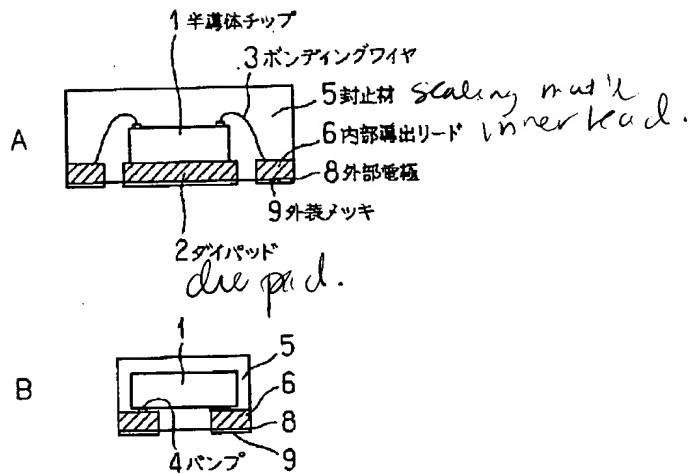 1 半導体チップ
3 ボンディングワイヤ
5 封止材 sealing mat'l
A
6 内部導出リード inner lead.
8 外部電極
9 外装メッキ
2 ダイパッド
die pad.
1
5
B
6
8
4 バンプ
9